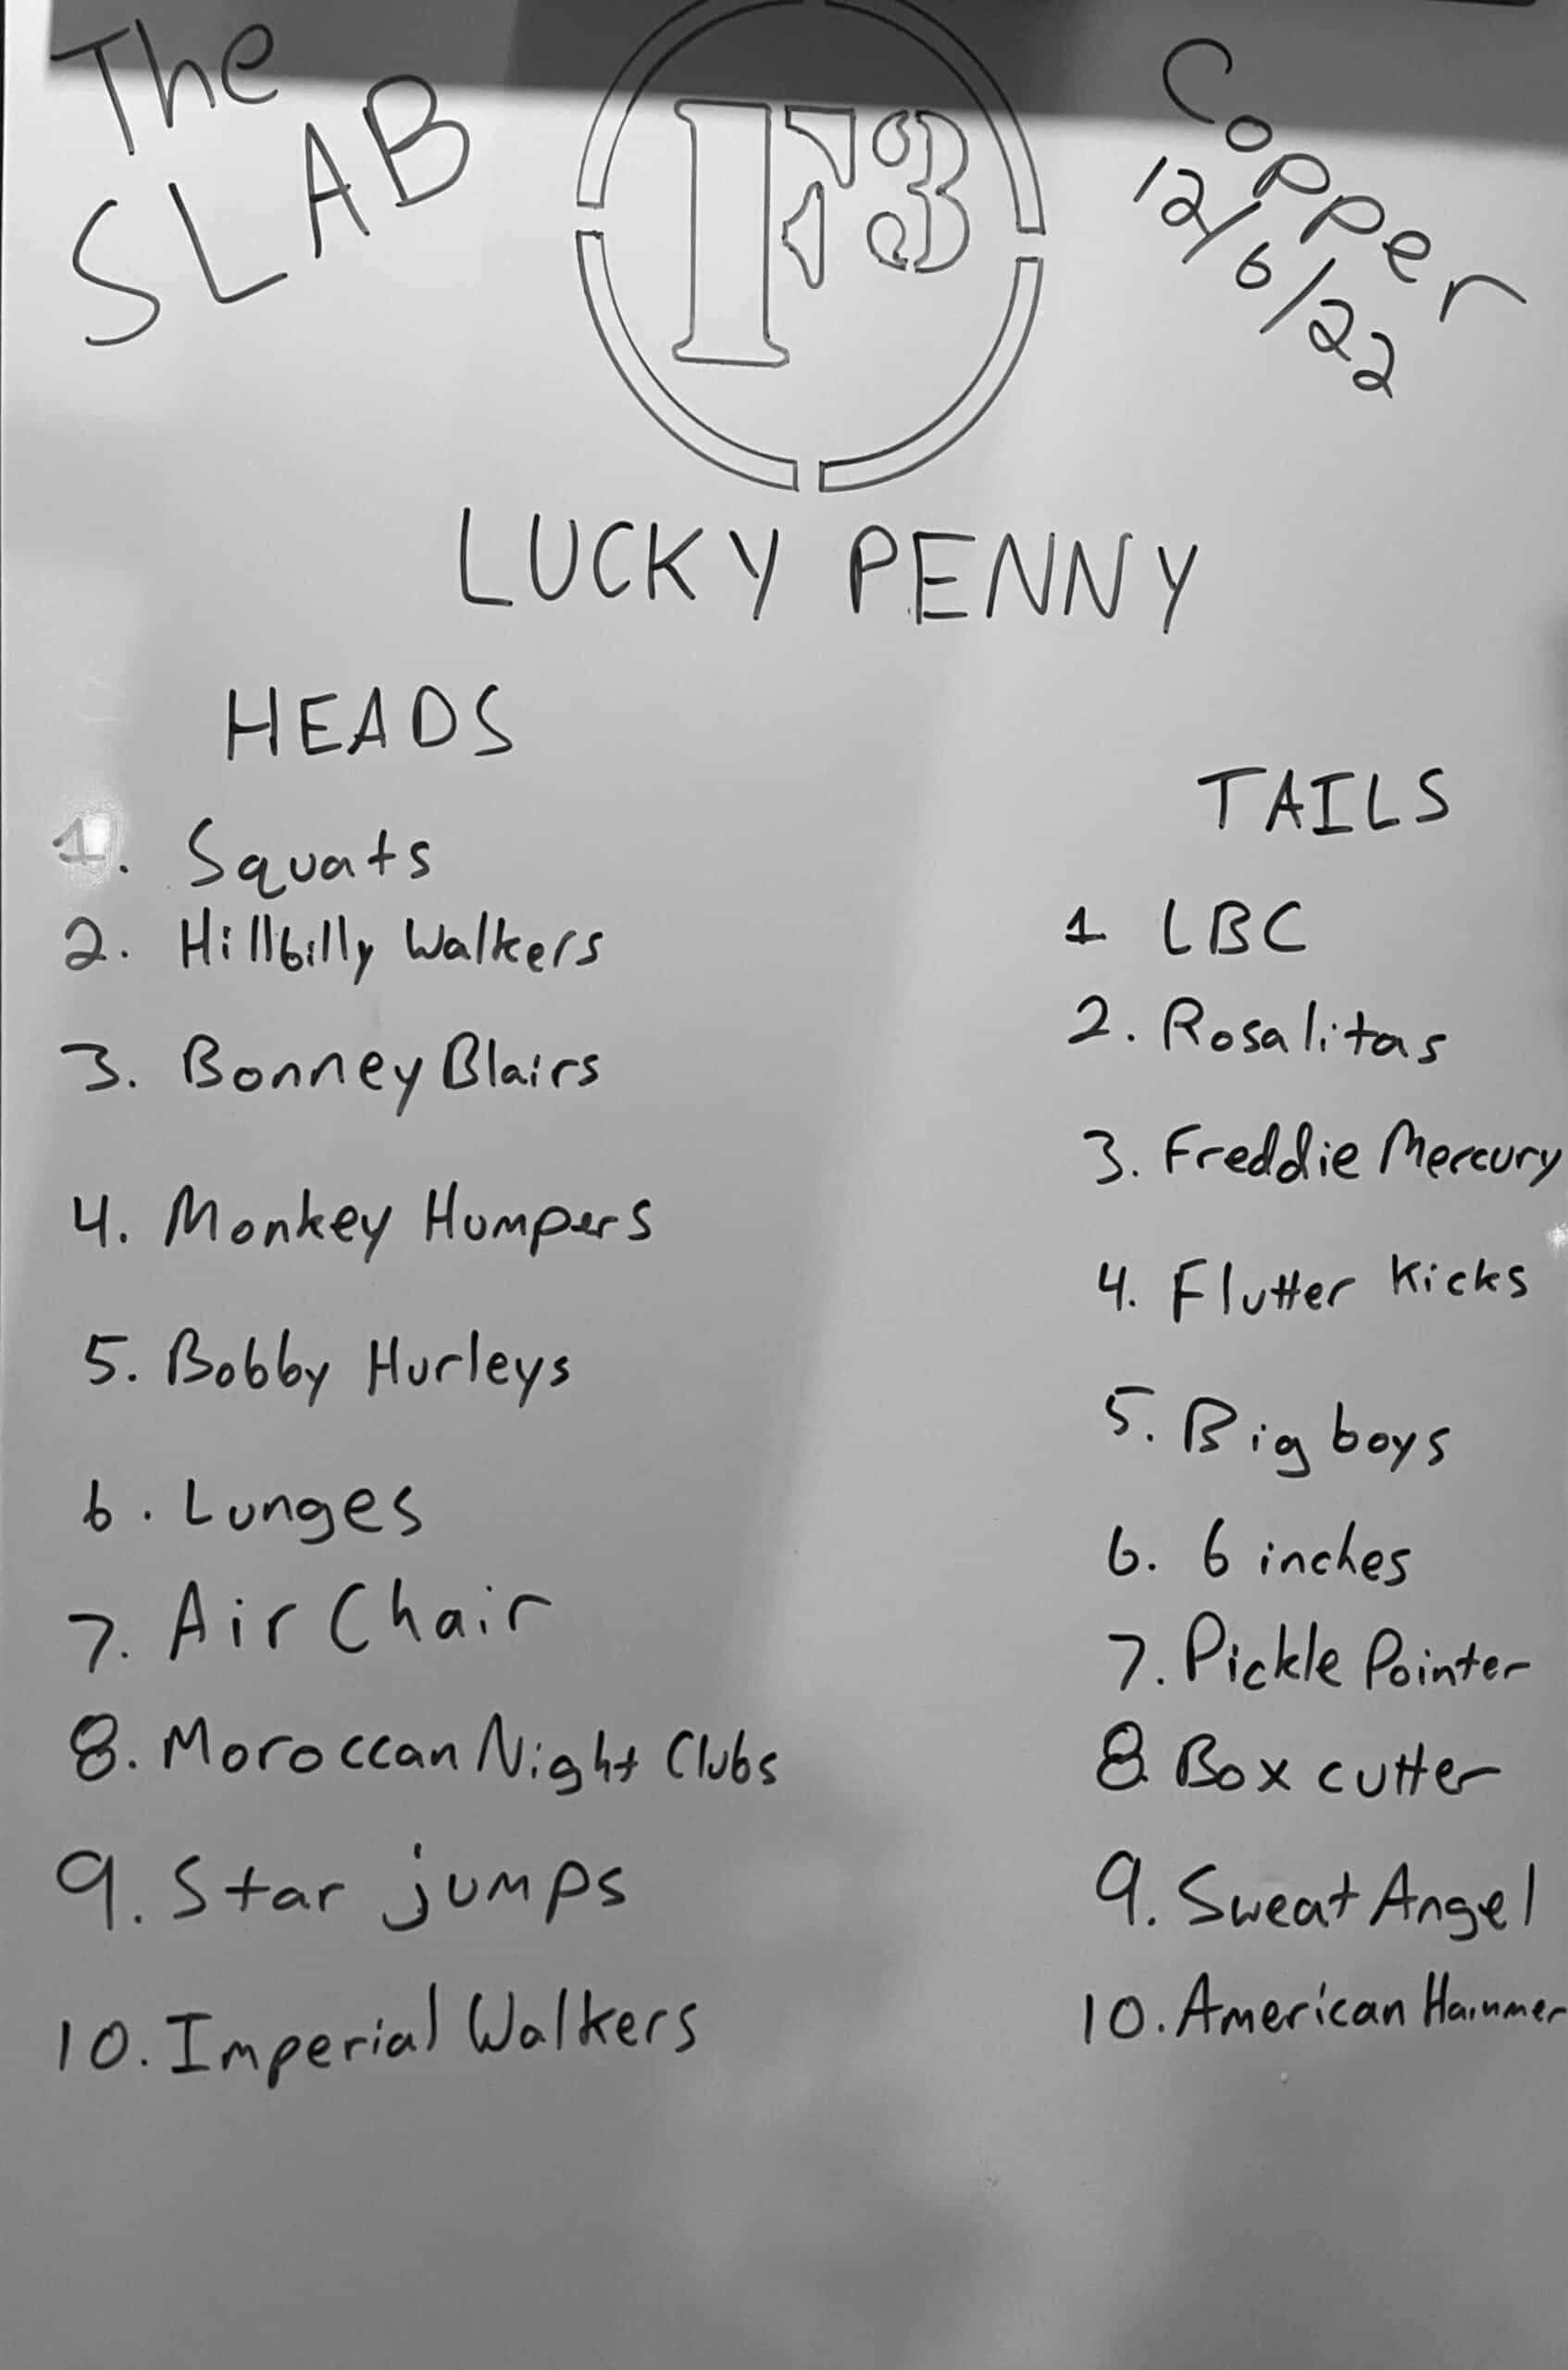 The
SLAB
F3
Copper
12/6/22
LUCKY PENNY
HEADS
1. Squats
2. Hillbilly Walkers
3. Bonney Blairs
4. Monkey Humpers
5. Bobby Hurleys
6. Lunges
7. Air Chair
8. Moroccan Night Clubs
9. Star jumps
10. Imperial Walkers
TAILS
1 LBC
2. Rosalitas
3. Freddie Mercury
4. Flutter Kicks
5. Big boys
6. 6 inches
7. Pickle Pointer
8. Box cutter
9. Sweat Angel
10. American Hammer